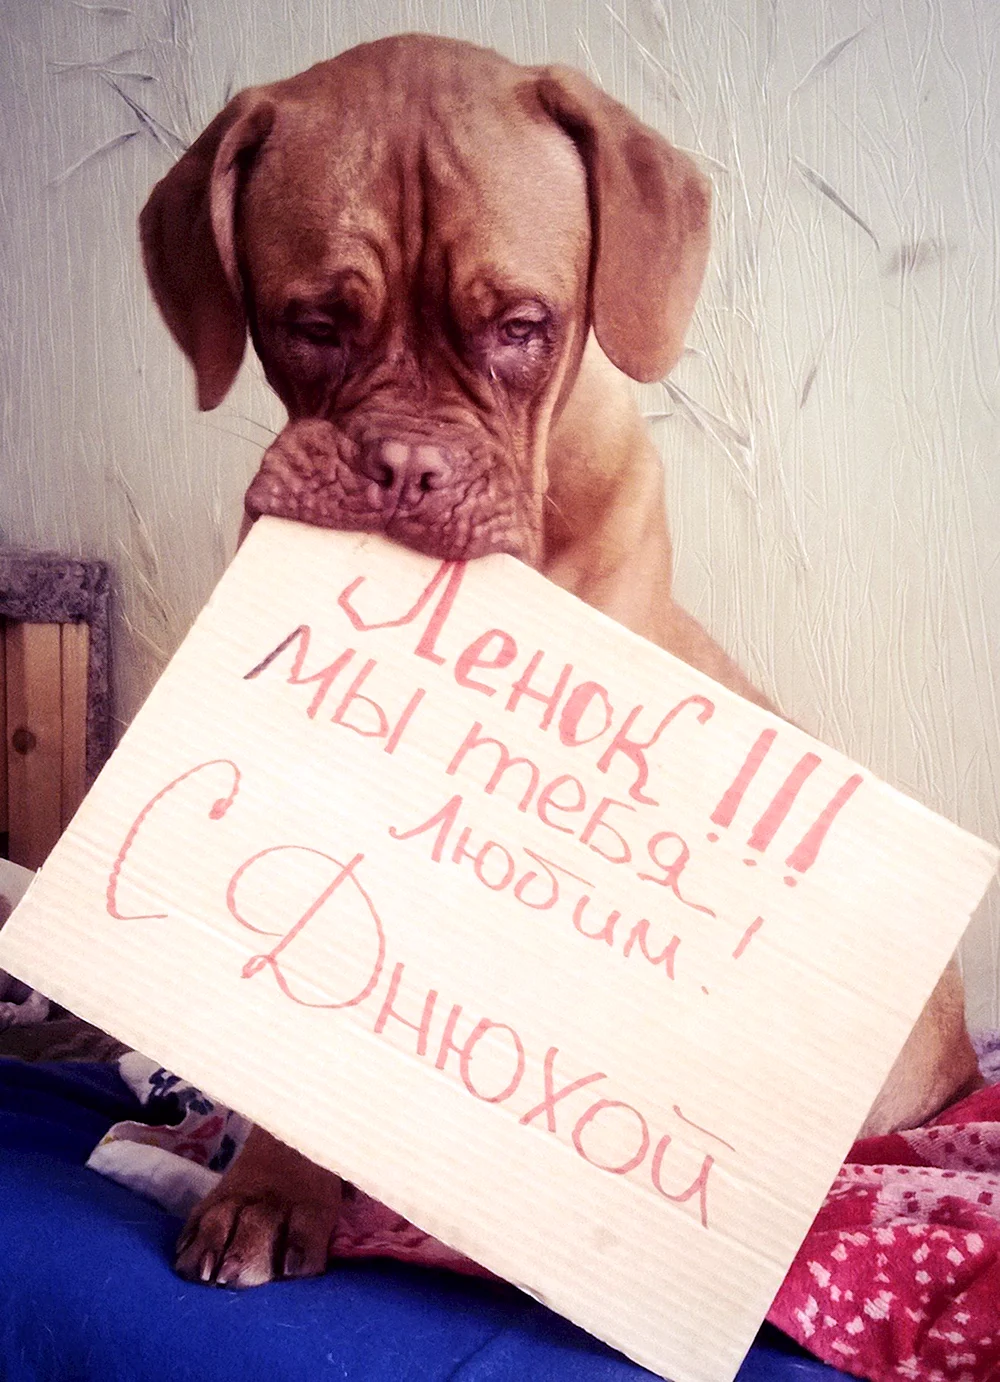 Ленок!!!
мы тебя
любим!
С Днюхой